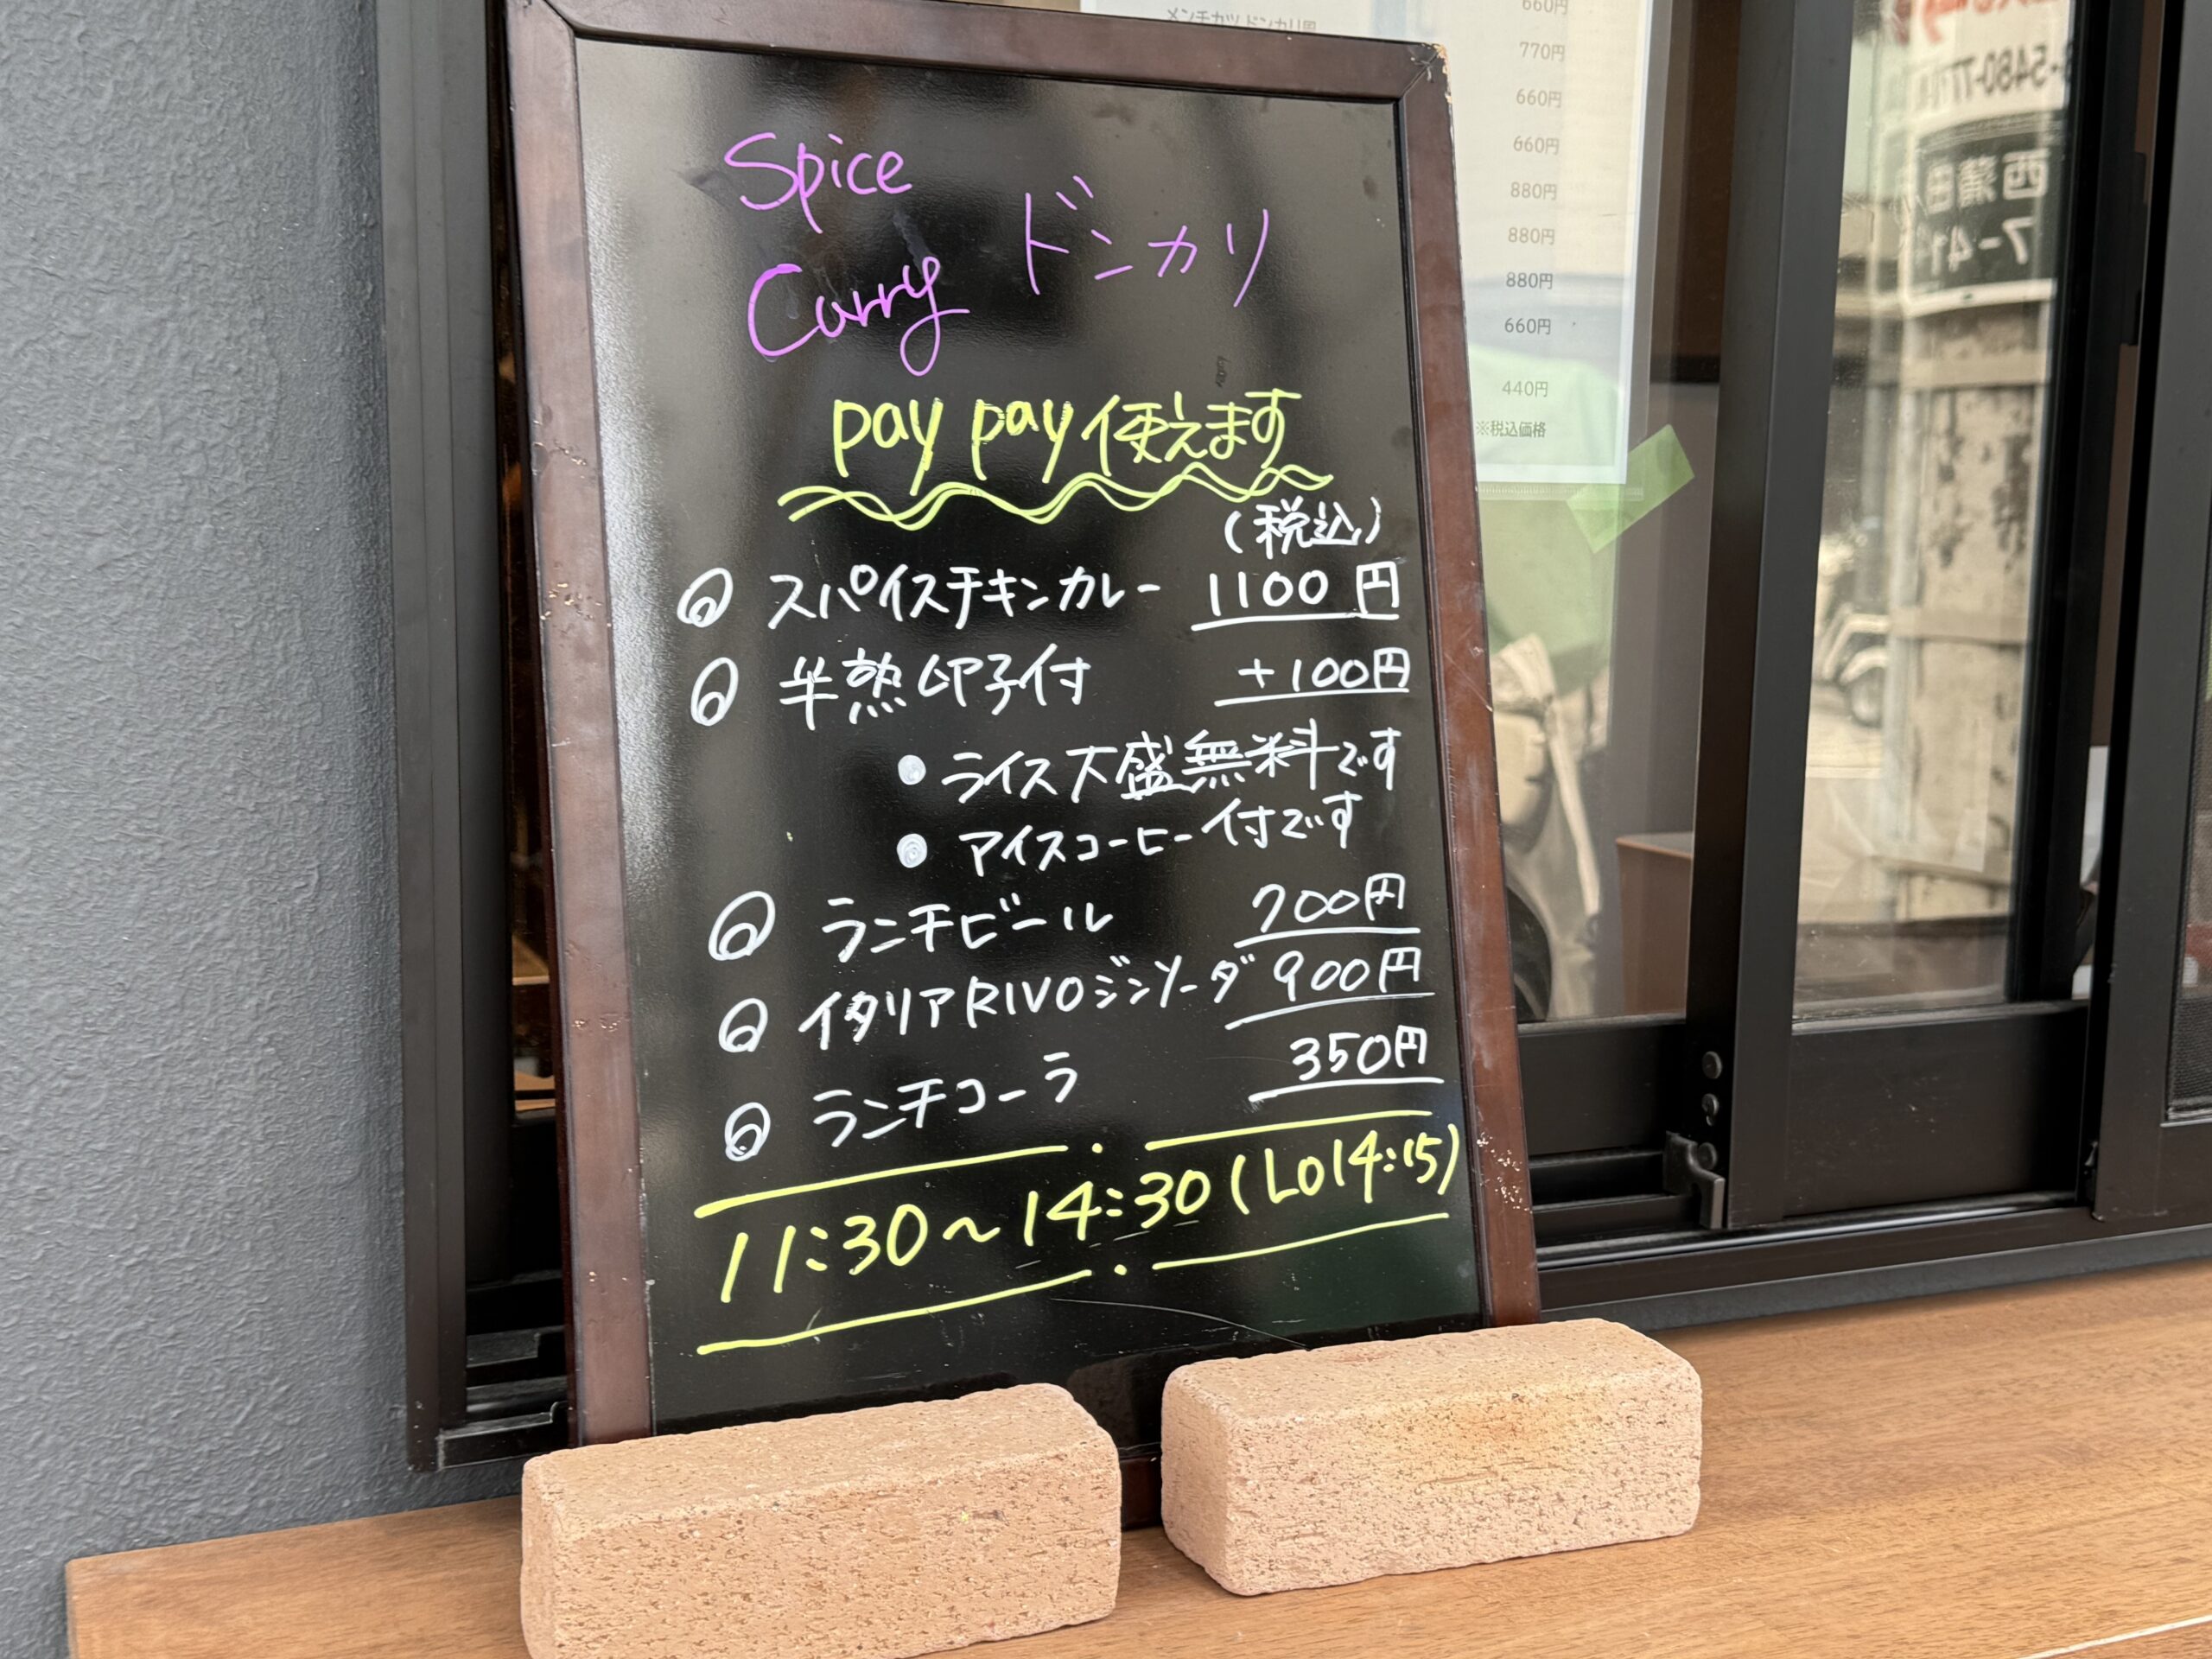 Spice
Curry
ドンカリ
pay pay 使えます
(税込)
スパイスチキンカレー 1100円
半熟卵子付 +100円
ライス大盛無料です
アイスコーヒー付です
ランチビール 700円
イタリアRIVOジンソーダ 900円
ランチコーラ 350円
11:30~14:30 (Lo14:15)
メンチカツ ドンカリ風
660円
770円
660円
660円
880円
880円
880円
660円
440円
※税込価格
西蒲田